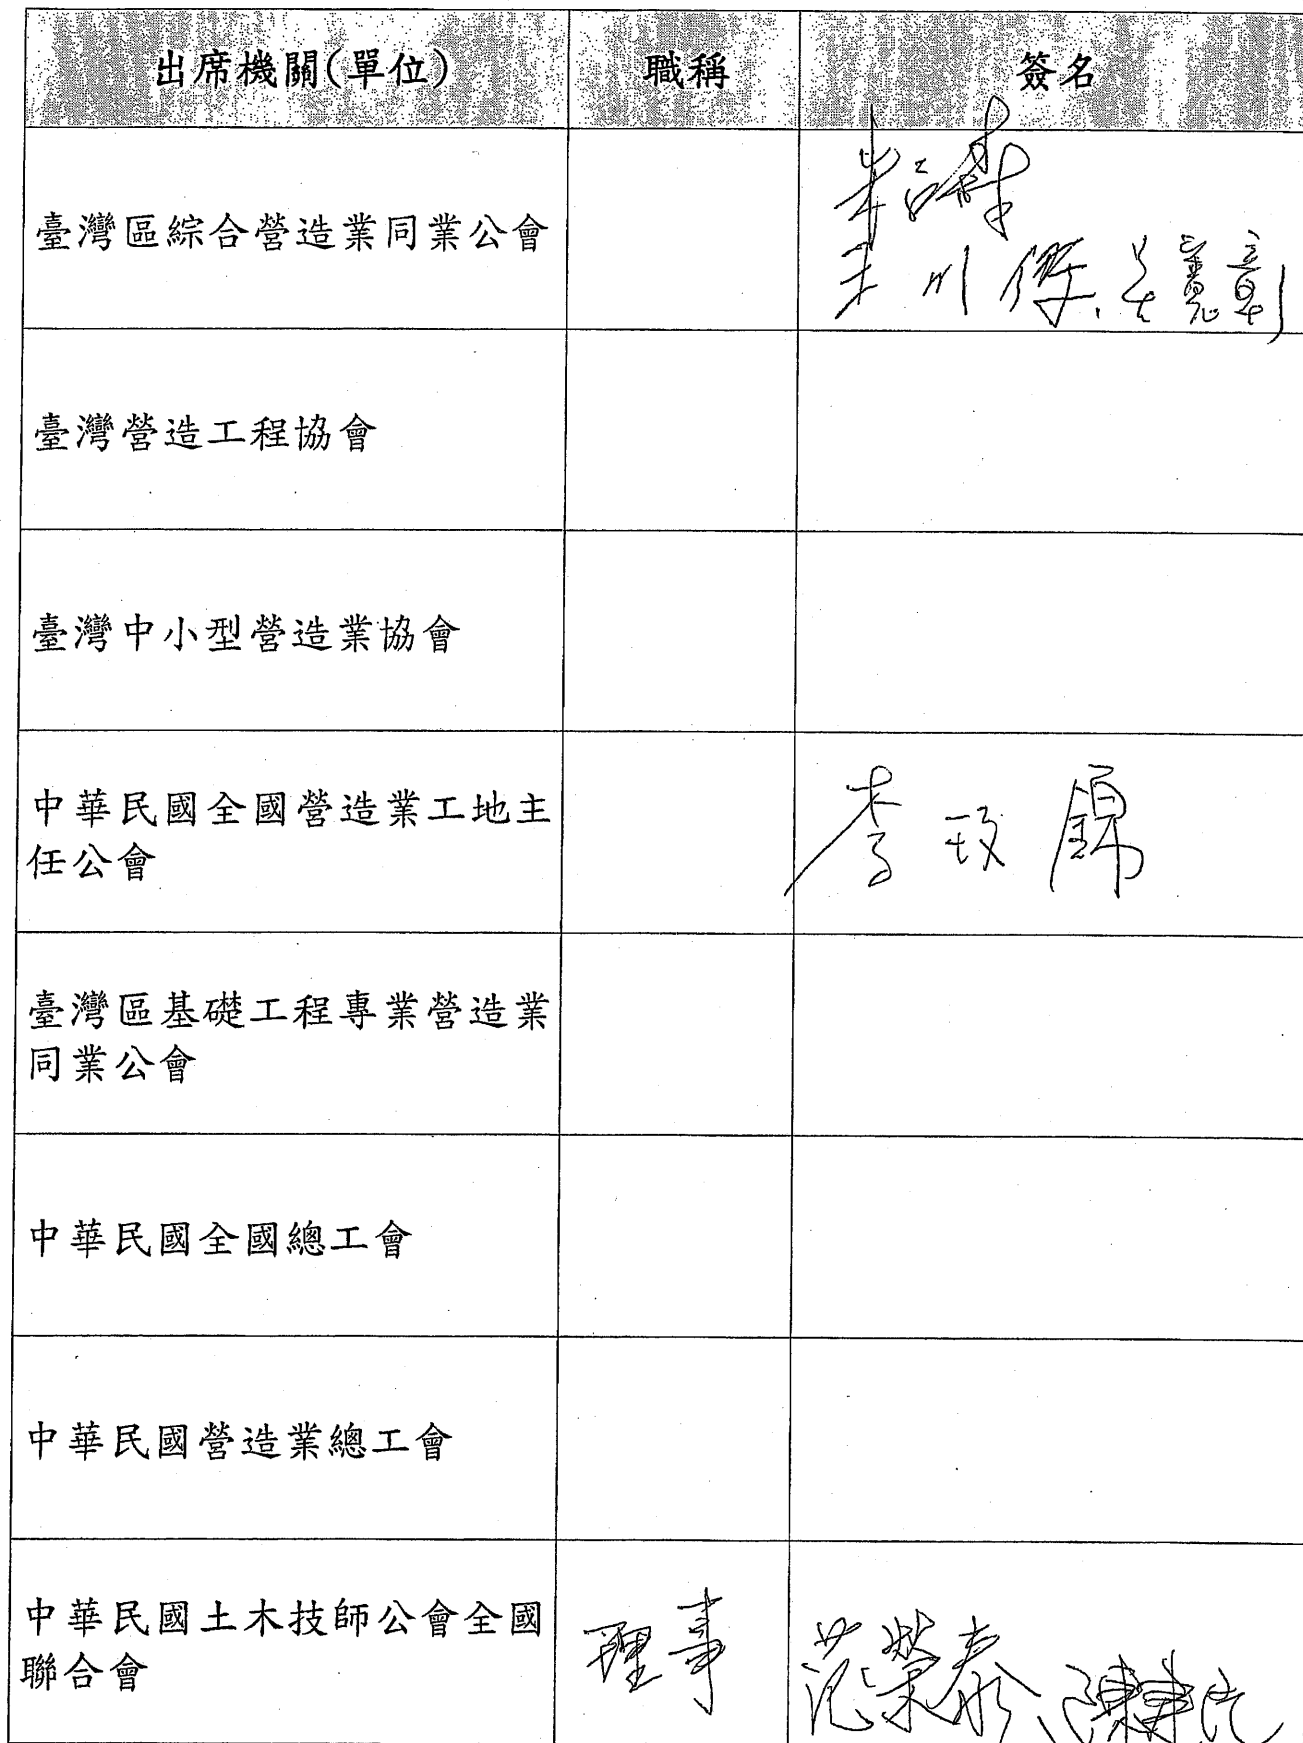 出席機關(單位) 職稱 簽名
臺灣區綜合營造業同業公會
王川傑、吳寬彰
臺灣營造工程協會
臺灣中小型營造業協會
中華民國全國營造業工地主
任公會
李玫錦
臺灣區基礎工程專業營造業
同業公會
中華民國全國總工會
中華民國營造業總工會
中華民國土木技師公會全國
聯合會
理事 范榮泰